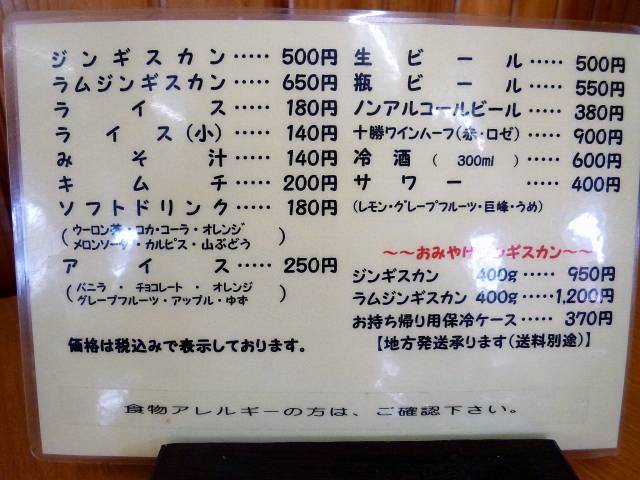 ジンギスカン ‥‥‥ 500円
ラムジンギスカン ‥‥‥ 650円
ライス ‥‥‥ 180円
ライス(小) ‥‥‥ 140円
みそ汁 ‥‥‥ 140円
キムチ ‥‥‥ 200円
ソフトドリンク ‥‥‥ 180円
(ウーロン茶・コカ・コーラ・オレンジ
メロンソーダ・カルピス・山ぶどう)
アイス ‥‥‥ 250円
(バニラ・チョコレート・オレンジ
グレープフルーツ・アップル・ゆず)
価格は税込みで表示しております。
生ビール ‥‥‥ 500円
瓶ビール ‥‥‥ 550円
ノンアルコールビール ‥‥‥ 380円
十勝ワインハーフ(赤・ロゼ) ‥‥‥ 900円
冷酒(300ml) ‥‥‥ 600円
サワー ‥‥‥ 400円
(レモン・グレープフルーツ・巨峰・うめ)
~~おみやげジンギスカン~~
ジンギスカン 400g ‥‥‥ 950円
ラムジンギスカン 400g ‥‥‥ 1,200円
お持ち帰り用保冷ケース ‥‥‥ 370円
【地方発送承ります(送料別途)】
食物アレルギーの方は、ご確認下さい。